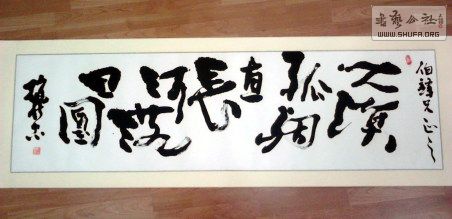 書藝公社
WWW.SHUFA.ORG
伯 兄正之
大漠
孤烟
直
長
河落
日圓